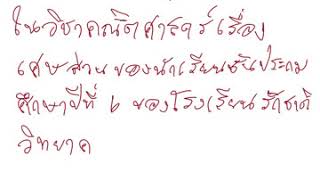 ในวิชาคณิตศาสตร์เรื่อง
เศษส่วนของนักเรียนชั้นประถม
ศึกษาปีที่ ๖ ของโรงเรียนรักชาติ
วิทยาค